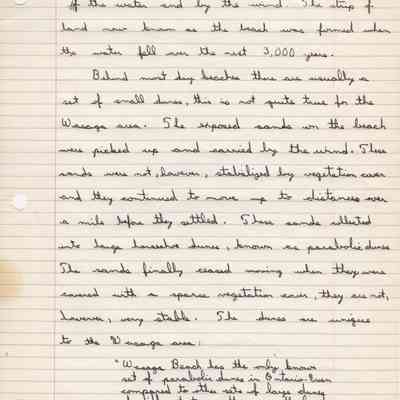 of the water and by the wind. The strip of
land now known as the beach was formed when
the water fell over the next 3,000 years.
Behind most day beaches there are usually a
set of small dunes, this is not quite true for the
Wasaga area. The exposed sands on the beach
were picked up and carried by the wind. These
sands were not, however, stabilized by vegetation cover
and they continued to move up to distances over
a mile before they settled. These sands collected
into large horseshoe dunes, known as parabolic dunes
The sands finally ceased moving when they were
covered with a sparse vegetation cover, they are not,
however, very stable. The dunes are unique
to the Wasaga area:
"Wasaga Beach has the only known
set of parabolic dunes in Ontario. Even
compared to other sets of large dunes